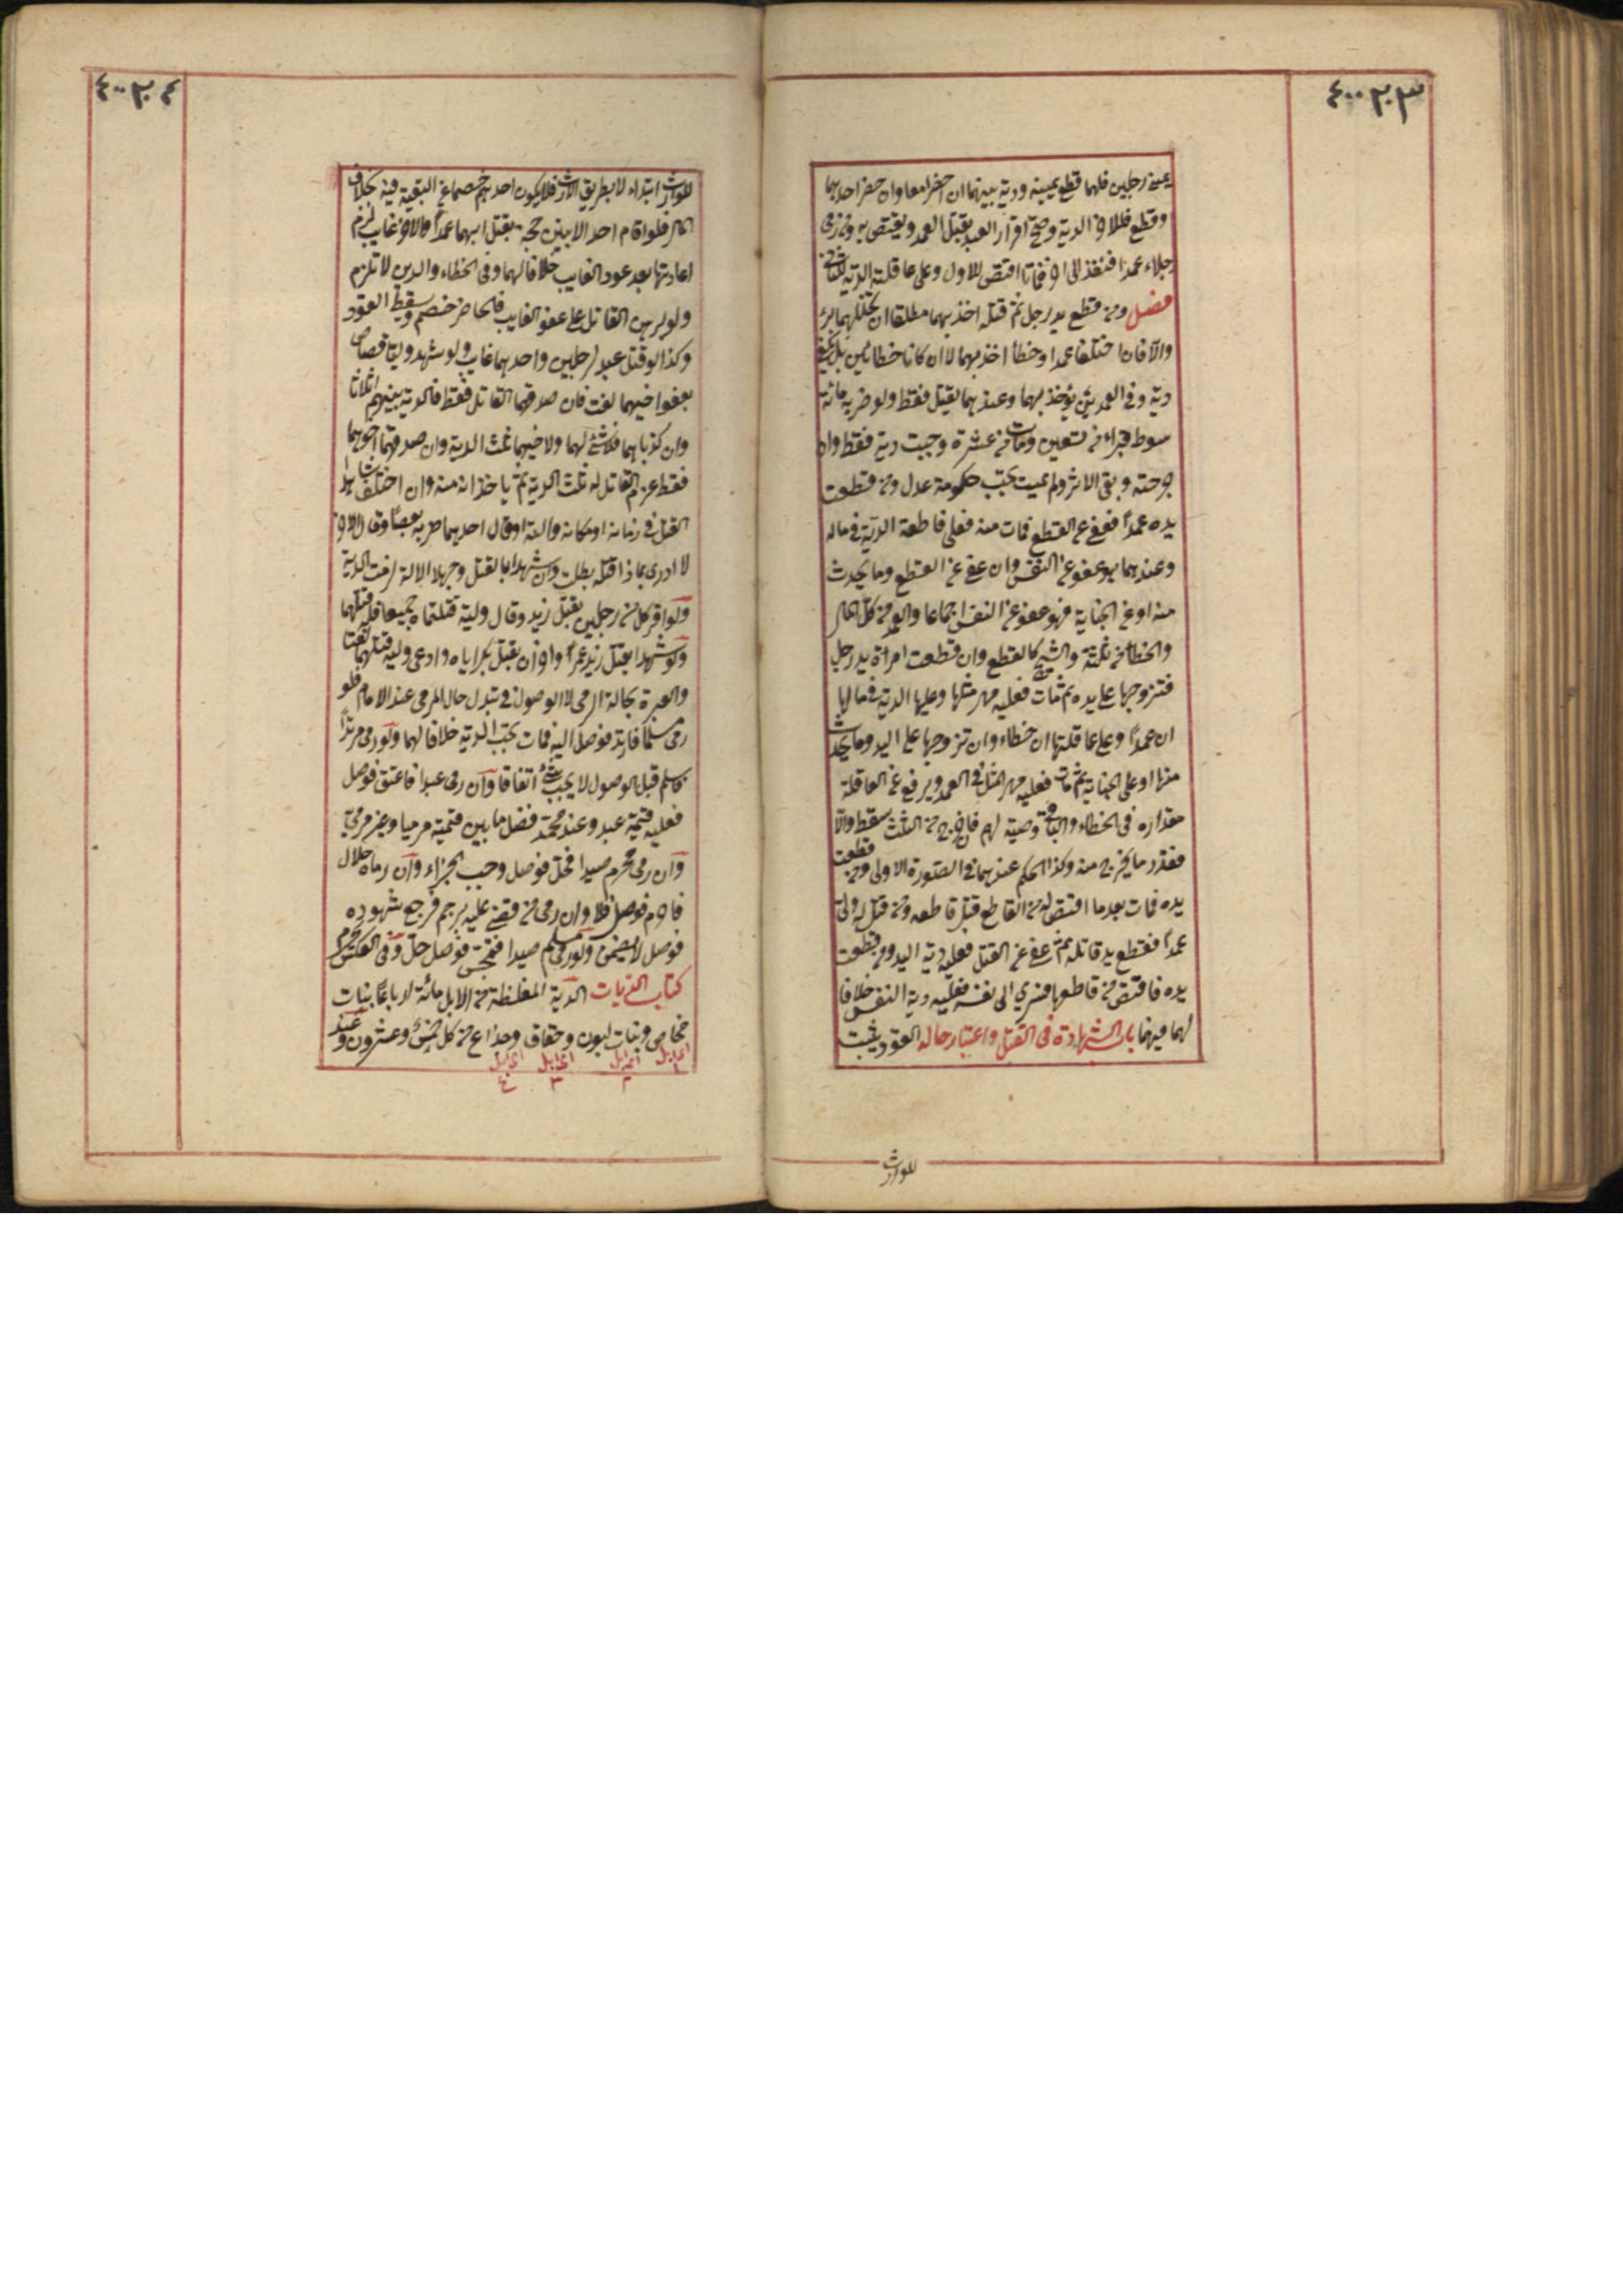 ٤٠٠٢٠٣
يمينى رجلين فلهما قطع يمينه ودية بينهما ان حضرا معا وان حضر احدهما
وقطع فللاخر الدية وصح اقرار العبد بقتل العمد ويقتص به ومن رمى
رجلا عمدا فنفذ الى اخر فماتا اقتص للاول وعلى عاقلته الدية للثانى
فصل ومن قطع يد رجل ثم قتله اخذ بهما مطلقا ان تخللهما برء
والا فان اختلفا عمدا وخطأ اخذ بهما لا ان كانا خطائين بل تكفى
دية وفى العمدين يؤخذ بهما وعندهما يقتل فقط ولو ضربه مائة
سوط فبراء من تسعين ومات من عشرة وجبت دية فقط وان
جرحته وبقى الاثر ولم يمت تجب حكومة عدل ومن قطعت
يده عمدا فعفى عن القطع فمات منه فعلى قاطعه الدية فى ماله
وعندهما هو عفو عن النفس وان عفى عن القطع وما يحدث
منه او عن الجناية فهو عفو عن النفس اجماعا والعمد من كل المال
والخطأ من ثلثه والشجة كالقطع وان قطعت امرأة يد رجل
فتزوجها على يده ثم مات فعليه مهر مثلها وعليها الدية فى مالها
ان عمدا وعلى عاقلتها ان خطاء وان تزوجها على اليد وما يحدث
منها او على الجناية ثم مات فعليه مهر المثل فى العمد ويرفع عن العاقلة
مقداره فى الخطاء والباقى وصية لهم فان خرج من الثلث سقط والا
فقدر ما يخرج منه وكذا الحكم عندهما فى الصورة الاولى ومن قطعت
يده فمات بعدما اقتص له من القاطع قتل قاطعه ومن قتل له ولى
عمدا فقطع يد قاتله ثم عفى عن القتل فعليه دية اليد ومن قطعت
يده فاقتص من قاطعها فسرى الى نفسه فعليه دية النفس خلافا
لهما فيهما باب الشهادة فى القتل واعتبار حاله القود يثبت
للوارث
٤٠٠٢٠٤
للوارث ابتداء لا بطريق الارث فلا يكون احدهم خصما عن البقية فيه بخلاف
المال فلو اقام احد الابنين حجة بقتل ابيهما عمدا والاخر غايب لزم
اعادتها بعد عود الغايب خلافا لهما وفى الخطاء والدين لا تلزم
ولو برهن القاتل على عفو الغايب فالحاضر خصم ويسقط القود
وكذا لو قتل عبد لرجلين واحدهما غايب ولو شهد وليا قصاص
بعفو اخيهما لغت فان صدقهما القاتل فقط فالدية بينهم اثلاثا
وان كذبا هما فلا شئ لهما ولاخيهما ثلث الدية وان صدقهما اخوهما
فقط غرم القاتل له ثلث الدية ثم ياخذانه منه وان اختلف شاهدا
القتل فى زمانه او مكانه او الته او قال احدهما ضربه بعصا وقال الاخر
لا ادرى بماذا قتله بطلت وان شهدا بالقتل وجهلا الالة لزمت الدية
ولو اقر كل من رجلين بقتل زيد وقال وليه قتلتماه جميعا فله قتلهما
ولو شهدا بقتل زيد عمرا واخران بقتل بكر اياه وادعى وليه قتلهما لغتا
والعبرة بحالة الرمى لا الوصول فى تبدل حال المرمى عند الامام فلو
رمى مسلما فارتد فوصل اليه فمات تجب الدية خلافا لهما ولو رمى مرتدا
فاسلم قبل الوصول لا يجب شئ اتفاقا وان رمى عبدا فاعتق فوصل
فعليه قيمته عبد وعند محمد فضل ما بين قيمته مرميا وغير مرمى
وان رمى محرم صيدا فحل فوصل وجب الجزاء وان رماه حلال
فاحرم فوصل فلا وان رمى من قضى عليه برجم فرجع شهوده
فوصل لا يضمن ولو رمى مسلم صيدا فتمجس فوصل حل وفى العكس يحرم
كتاب الديات الدية المغلظة من الابل مائة ارباعا بنات
مخاض وبنات لبون وحقاق وجذاع من كل خمس وعشرون وعند
١ ٢ ٣ ٤